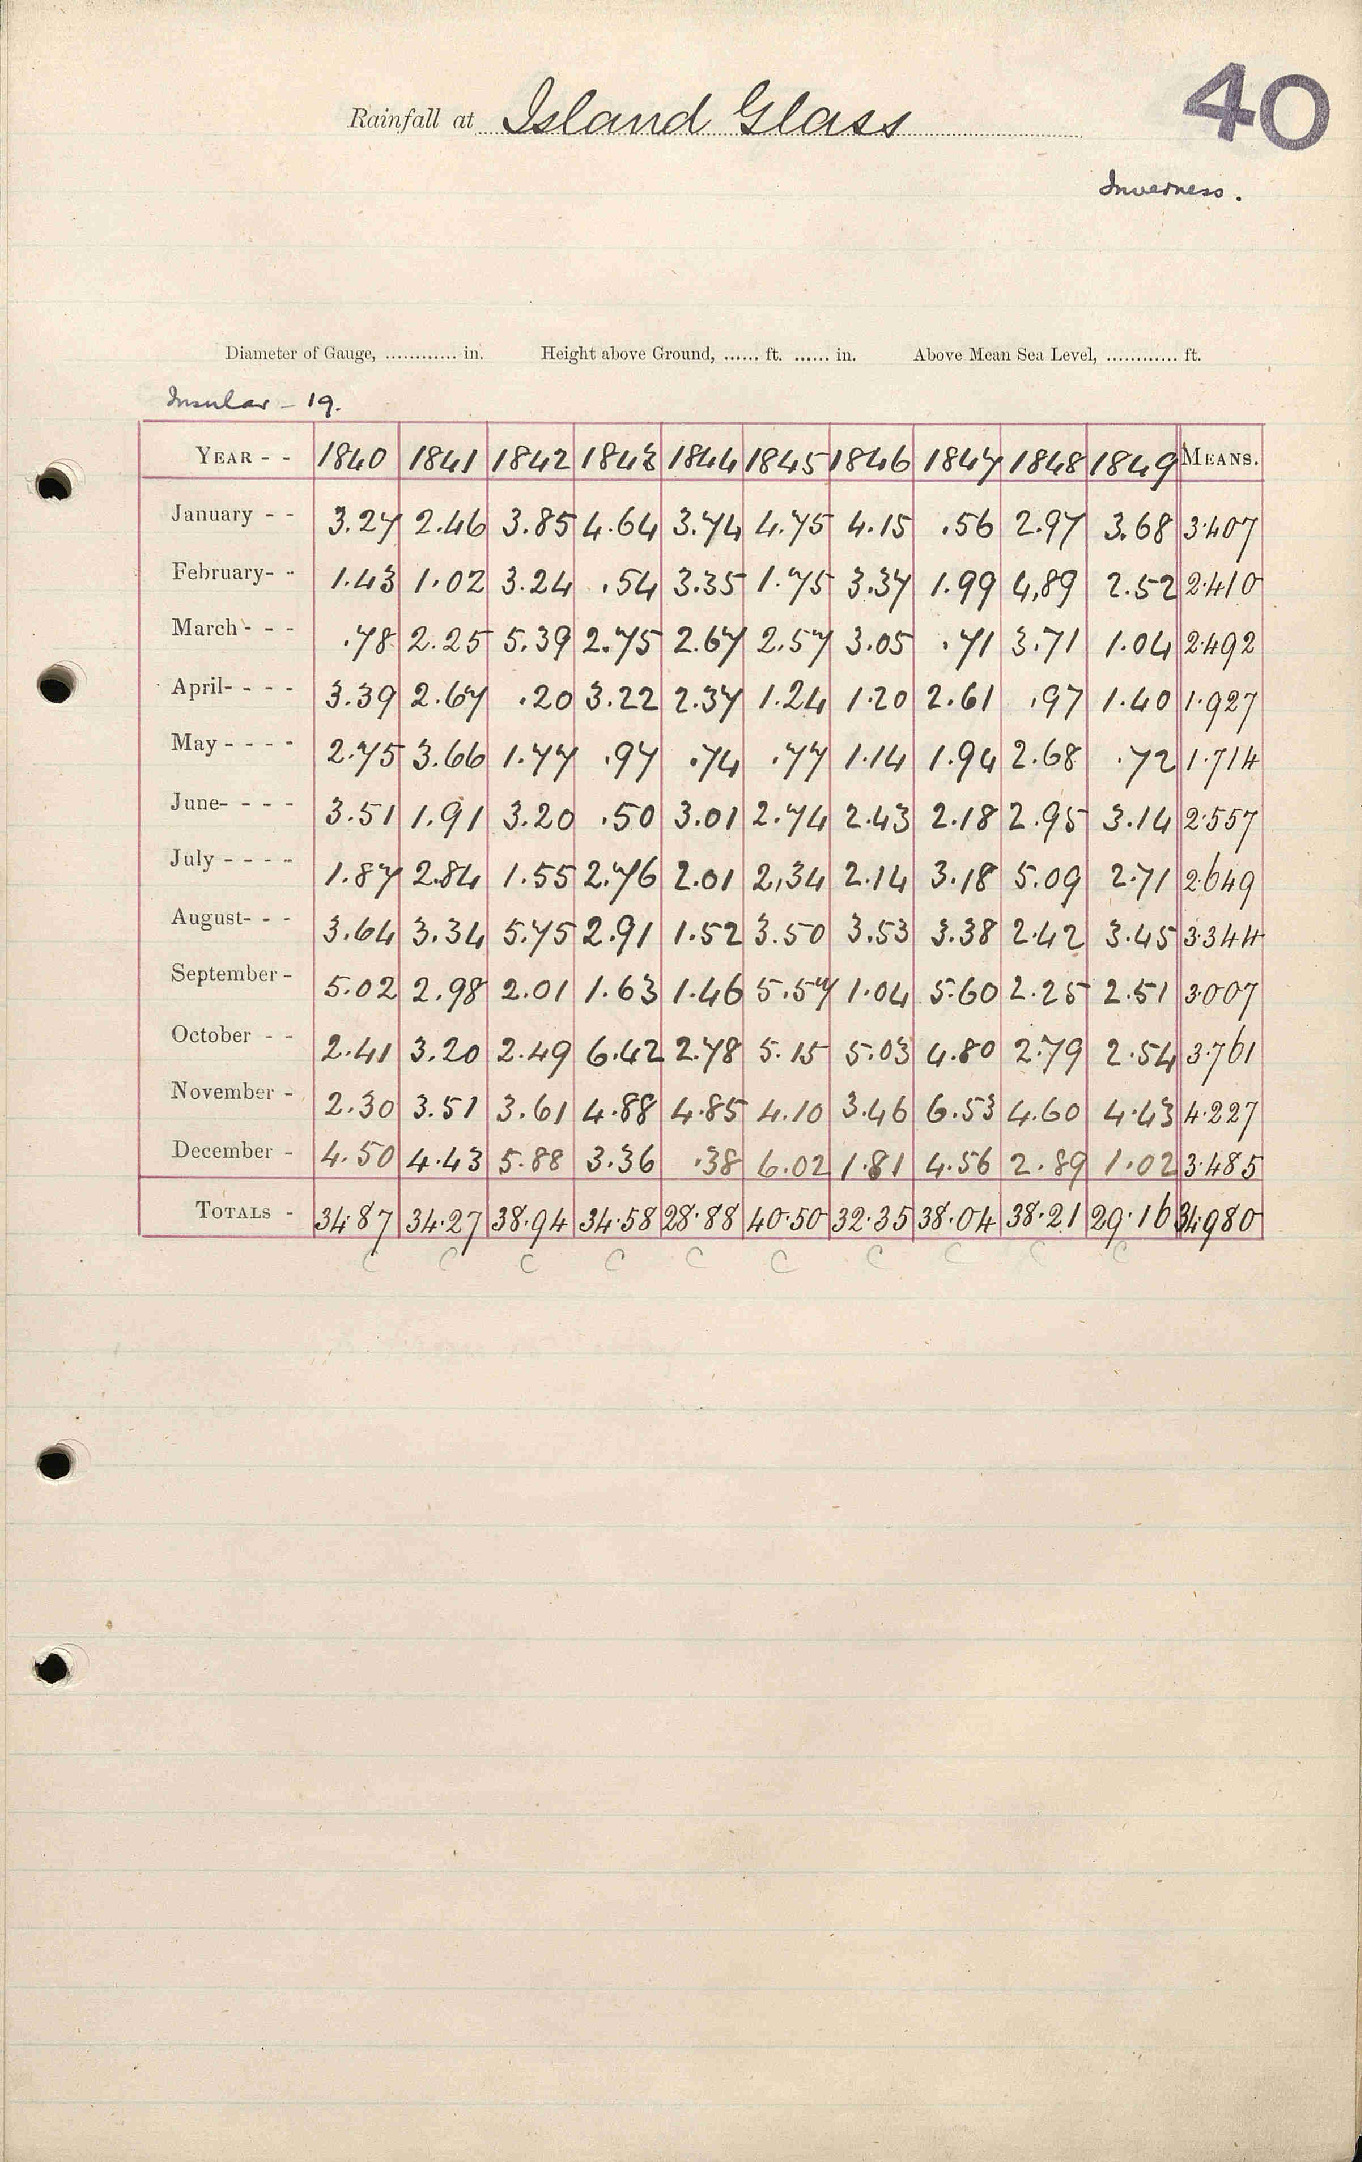 40
Rainfall at Island Glass
Inverness.
Diameter of Gauge, ............ in. Height above Ground, ...... ft. ...... in. Above Mean Sea Level, ............ ft.
Insular - 19.
YEAR - - 1840 1841 1842 1843 1844 1845 1846 1847 1848 1849 MEANS.
January - - 3.27 2.46 3.85 4.64 3.74 4.75 4.15 .56 2.97 3.68 3.407
February- - 1.43 1.02 3.24 .54 3.35 1.75 3.37 1.99 4,89 2.52 2.410
March - - - .78 2.25 5.39 2.75 2.67 2.57 3.05 .71 3.71 1.04 2.492
April- - - - 3.39 2.67 .20 3.22 2.37 1.24 1.20 2.61 .97 1.40 1.927
May - - - - 2.75 3.66 1.77 .97 .74 .77 1.14 1.94 2.68 .72 1.714
June- - - - 3.51 1.91 3.20 .50 3.01 2.74 2.43 2.18 2.95 3.14 2.557
July - - - - 1.87 2.84 1.55 2.76 2.01 2,34 2.14 3.18 5.09 2.71 2.649
August- - - 3.64 3.34 5.75 2.91 1.52 3.50 3.53 3.38 2.42 3.45 3.344
September - 5.02 2.98 2.01 1.63 1.46 5.57 1.04 5.60 2.25 2.51 3.007
October - - 2.41 3.20 2.49 6.42 2.78 5.15 5.03 4.80 2.79 2.54 3.761
November - 2.30 3.51 3.61 4.88 4.85 4.10 3.46 6.53 4.60 4.43 4.227
December - 4.50 4.43 5.88 3.36 .38 6.02 1.81 4.56 2.89 1.02 3.485
TOTALS - 34.87 34.27 38.94 34.58 28.88 40.50 32.35 38.04 38.21 29.16 34.980
C C C C C C C C C C